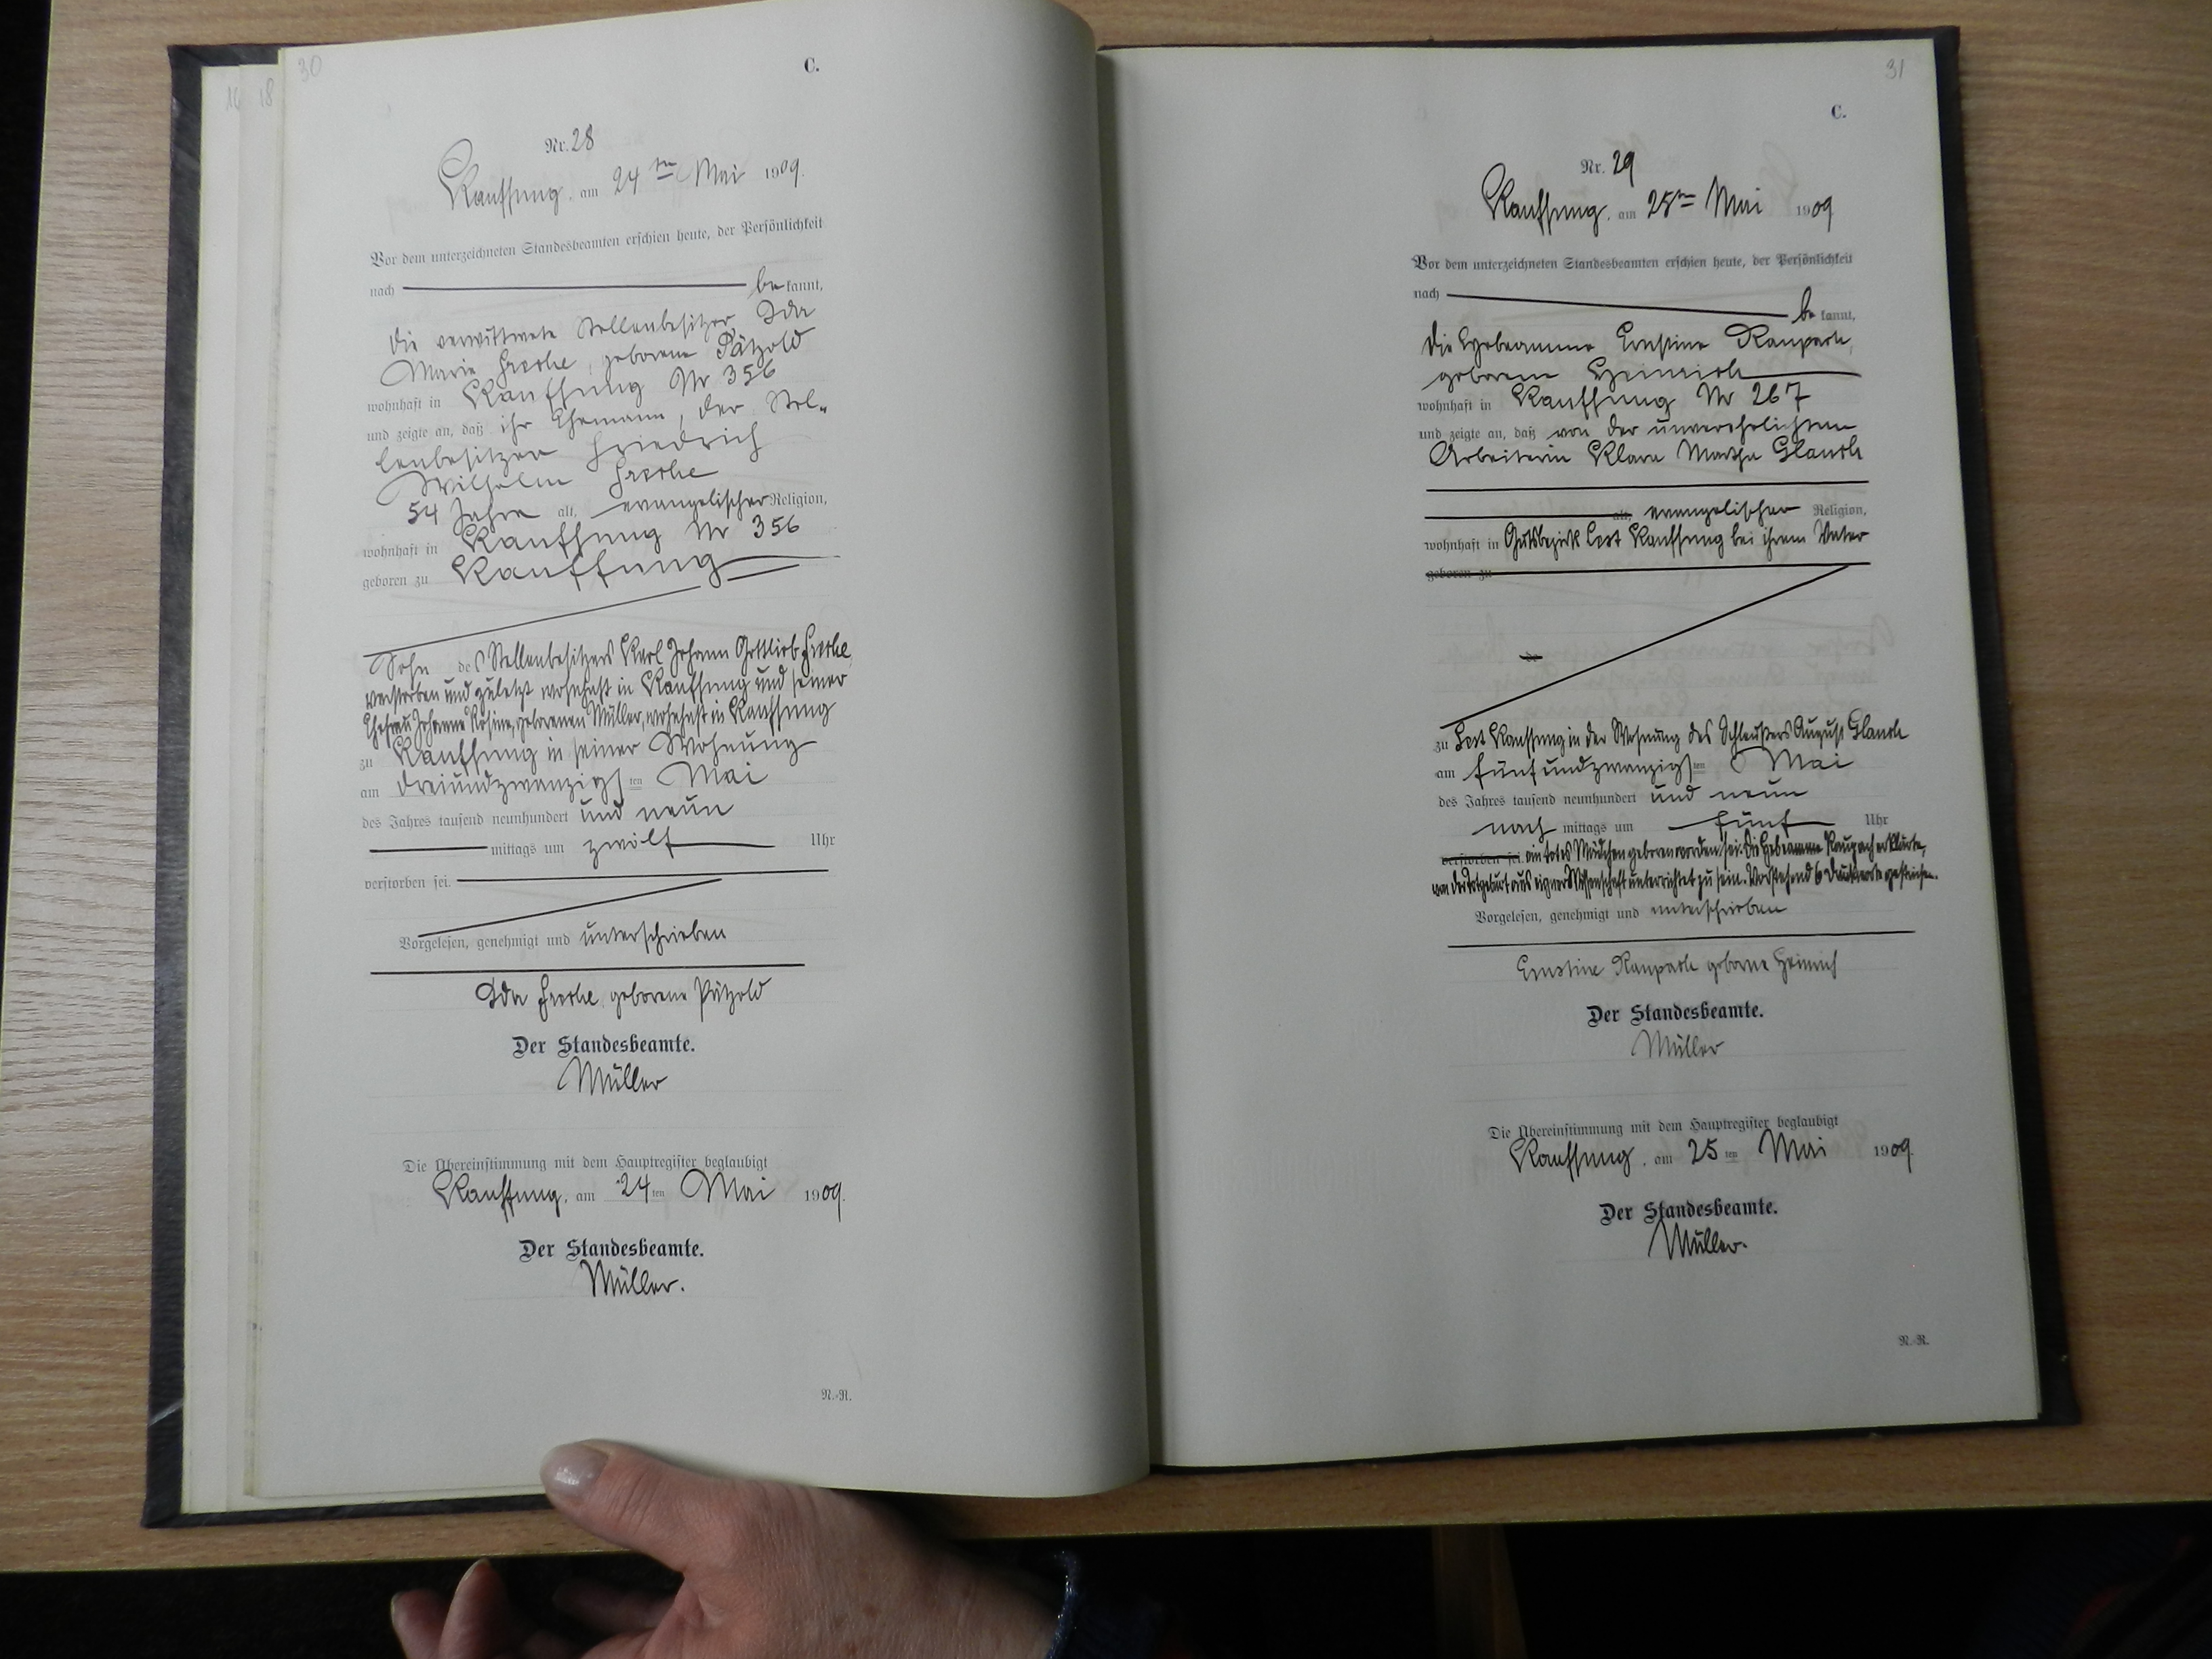 16 18 30
C.
Nr. 28
Kauffung, am 24ten Mai 1909.
Vor dem unterzeichneten Standesbeamten erschien heute, der Persönlichkeit
nach be kannt,
die verwittwete Stellenbesitzer Ida
Marie geborene Pätzold
wohnhaft in Kauffung Nr 356
und zeigte an, daß ihr Ehemann, der Stel-
lenbesitzer Friedrich
Wilhelm
54 Jahre alt, evangelischer Religion,
wohnhaft in Kauffung Nr 356
geboren zu Kauffung
Sohn des Stellenbesitzers Karl Johann Gottlieb
verstorben und zuletzt wohnhaft in Kauffung und seiner
Ehefrau Johanne Rosine, geborenen Müller, wohnhaft in Kauffung
zu Kauffung in seiner Wohnung
am dreiundzwanzigsten Mai
des Jahres tausend neunhundert und neun
mittags um zwölf Uhr
verstorben sei.
Vorgelesen, genehmigt und unterschrieben
Ida geborene Pätzold
Der Standesbeamte.
Müller
Die Übereinstimmung mit dem Hauptregister beglaubigt
Kauffung, am 24ten Mai 1909.
Der Standesbeamte.
Müller.
N.-R.
31
C.
Nr. 29
Kauffung, am 25ten Mai 1909
Vor dem unterzeichneten Standesbeamten erschien heute, der Persönlichkeit
nach be kannt,
die Hebeamme Ernstine Raupach,
geborene Heinrich
wohnhaft in Kauffung Nr 267
und zeigte an, daß von der unverehelichten
Arbeiterin Klara Martha Glauch
alt, evangelischer Religion,
wohnhaft in Gutsbezirk Lest Kauffung bei ihrem Vater
geboren zu
zu Lest Kauffung in der Wohnung des Schleußers August Glauch
am fünfundzwanzigsten Mai
des Jahres tausend neunhundert und neun
nach mittags um fünf Uhr
verstorben sei. ein totes Mädchen geboren worden sei. Die Hebeamme Raupach erklärte,
von der Totgeburt aus eigner Wissenschaft unterrichtet zu sein. Vorstehend 6 Druckworte gestrichen.
Vorgelesen, genehmigt und unterschrieben
Ernstine Raupach geborne Heinrich
Der Standesbeamte.
Müller
Die Übereinstimmung mit dem Hauptregister beglaubigt
Kauffung, am 25ten Mai 1909.
Der Standesbeamte.
Müller.
N.-R.